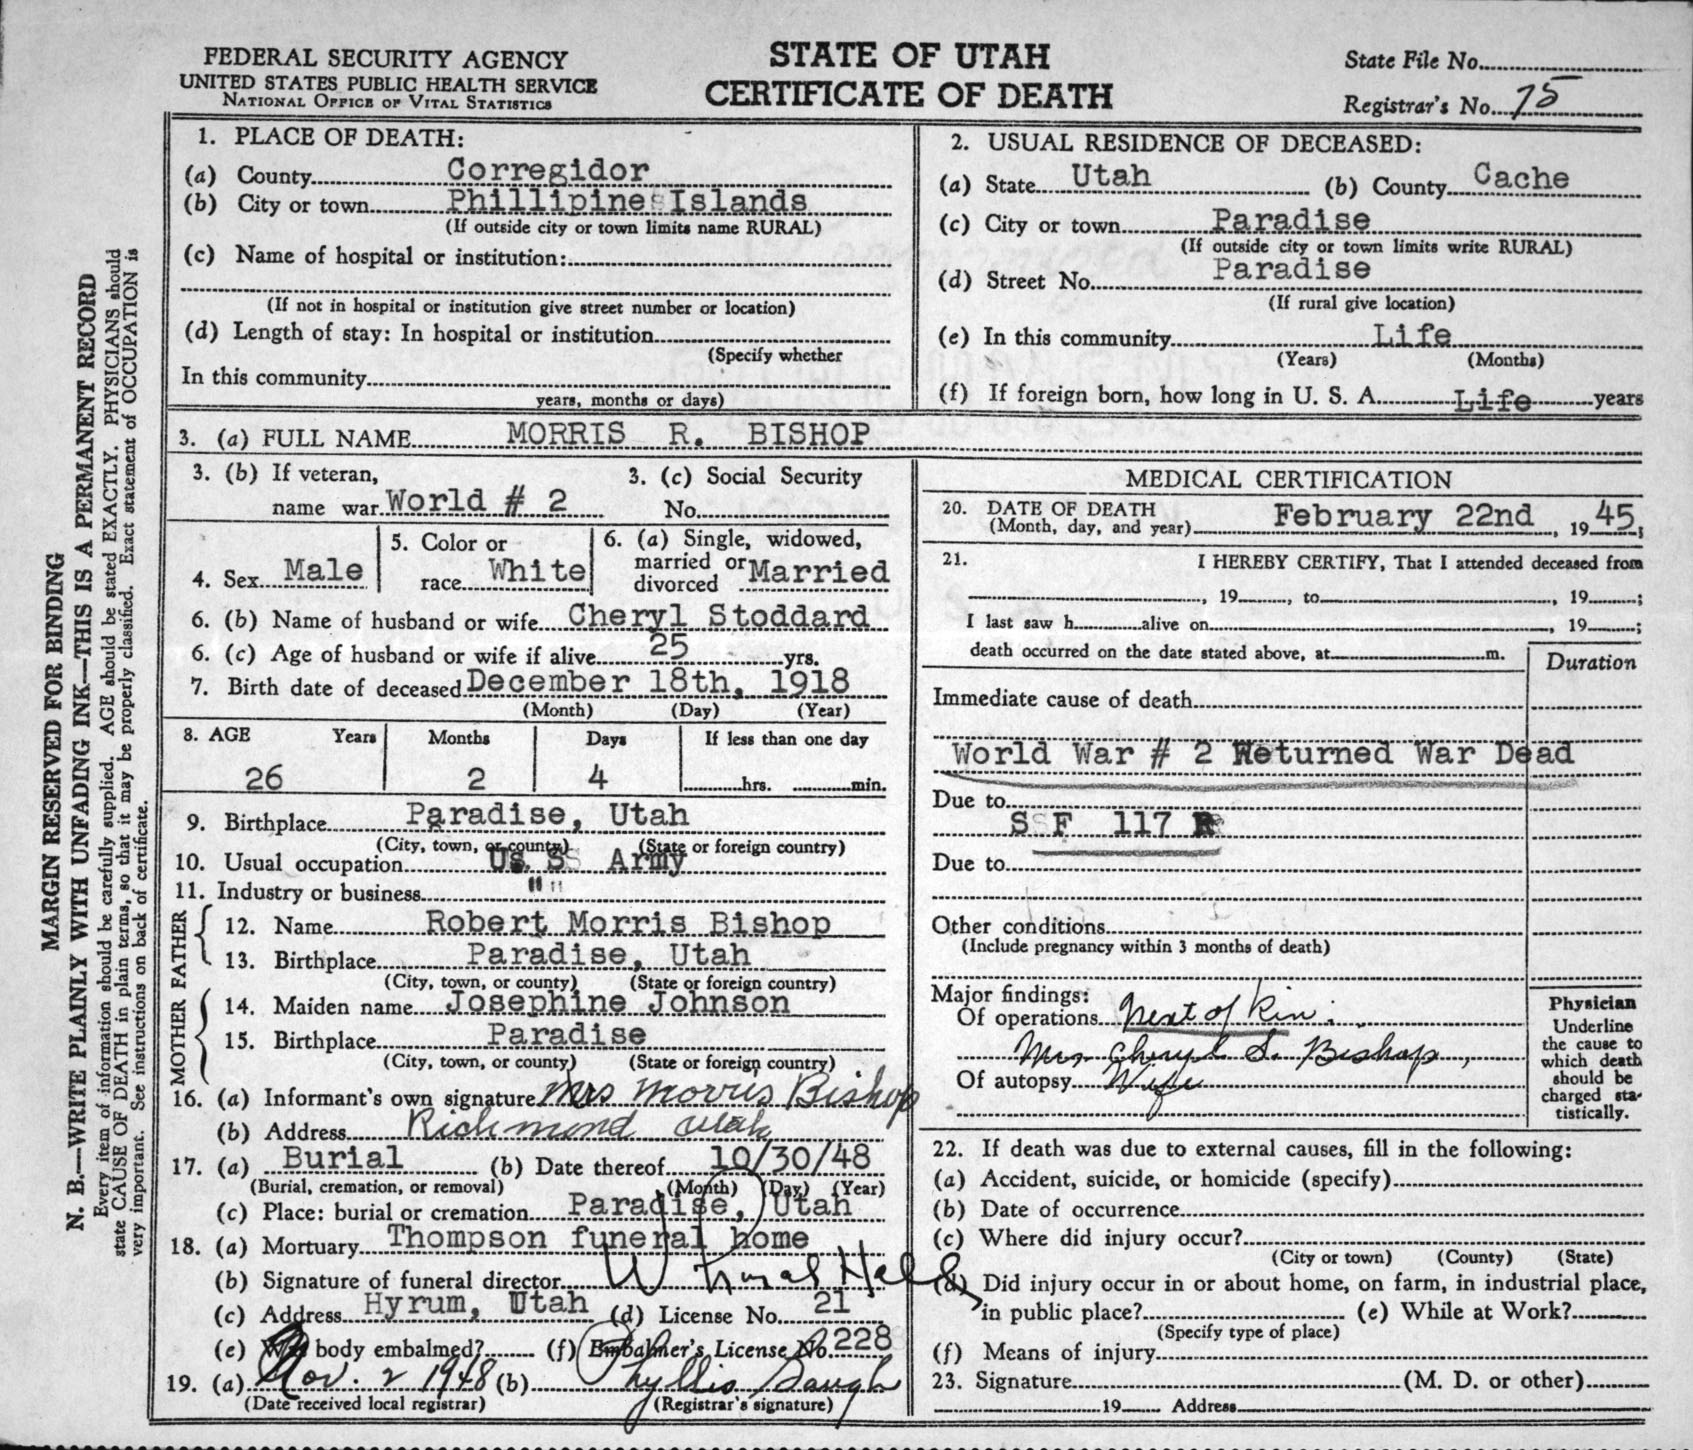 FEDERAL SECURITY AGENCY
UNITED STATES PUBLIC HEALTH SERVICE
NATIONAL OFFICE OF VITAL STATISTICS
STATE OF UTAH
CERTIFICATE OF DEATH
State File No.
Registrar's No. 75
MARGIN RESERVED FOR BINDING
N. B.—WRITE PLAINLY WITH UNFADING INK—THIS IS A PERMANENT RECORD
Every item of information should be carefully supplied. AGE should be stated EXACTLY. PHYSICIANS should
state CAUSE OF DEATH in plain terms, so that it may be properly classified. Exact statement of OCCUPATION is
very important. See instructions on back of certificate.
1. PLACE OF DEATH:
(a) County Corregidor
(b) City or town Phillipines Islands
(If outside city or town limits name RURAL)
(c) Name of hospital or institution:
(If not in hospital or institution give street number or location)
(d) Length of stay: In hospital or institution
(Specify whether
In this community
years, months or days)
2. USUAL RESIDENCE OF DECEASED:
(a) State Utah (b) County Cache
(c) City or town Paradise
(If outside city or town limits write RURAL)
(d) Street No. Paradise
(If rural give location)
(e) In this community Life
(Years) (Months)
(f) If foreign born, how long in U. S. A. Life years
3. (a) FULL NAME MORRIS R. BISHOP
3. (b) If veteran,
name war World # 2
3. (c) Social Security
No.
4. Sex Male
5. Color or
race White
6. (a) Single, widowed,
married or
divorced Married
6. (b) Name of husband or wife Cheryl Stoddard
6. (c) Age of husband or wife if alive 25 yrs.
7. Birth date of deceased December 18th, 1918
(Month) (Day) (Year)
8. AGE Years Months Days If less than one day
26 2 4 hrs. min.
9. Birthplace Paradise, Utah
(City, town, or county) (State or foreign country)
10. Usual occupation U. S. Army
11. Industry or business " "
FATHER
12. Name Robert Morris Bishop
13. Birthplace Paradise, Utah
(City, town, or county) (State or foreign country)
MOTHER
14. Maiden name Josephine Johnson
15. Birthplace Paradise
(City, town, or county) (State or foreign country)
16. (a) Informant's own signature Mrs Morris Bishop
(b) Address Richmond Utah
17. (a) Burial (b) Date thereof 10/30/48
(Burial, cremation, or removal) (Month) (Day) (Year)
(c) Place: burial or cremation Paradise, Utah
18. (a) Mortuary Thompson funeral home
(b) Signature of funeral director W
(c) Address Hyrum, Utah (d) License No. 21
(e) Was body embalmed? (f) Embalmer's License No. 228
19. (a) Nov. 2 1948 (b) Phyllis Baugh
(Date received local registrar) (Registrar's signature)
MEDICAL CERTIFICATION
20. DATE OF DEATH
(Month, day, and year) February 22nd, 1945;
21. I HEREBY CERTIFY, That I attended deceased from
, 19 , to , 19 ;
I last saw h alive on , 19 ;
death occurred on the date stated above, at m.
Duration
Immediate cause of death
World War # 2 Returned War Dead
Due to
S F 117 R
Due to
Other conditions
(Include pregnancy within 3 months of death)
Major findings:
Of operations Next of Kin.
Mrs Cheryl S. Bishop,
Of autopsy Wife
Physician
Underline
the cause to
which death
should be
charged sta-
tistically.
22. If death was due to external causes, fill in the following:
(a) Accident, suicide, or homicide (specify)
(b) Date of occurrence
(c) Where did injury occur?
(City or town) (County) (State)
(d) Did injury occur in or about home, on farm, in industrial place,
in public place? (e) While at Work?
(Specify type of place)
(f) Means of injury
23. Signature (M. D. or other)
19 Address